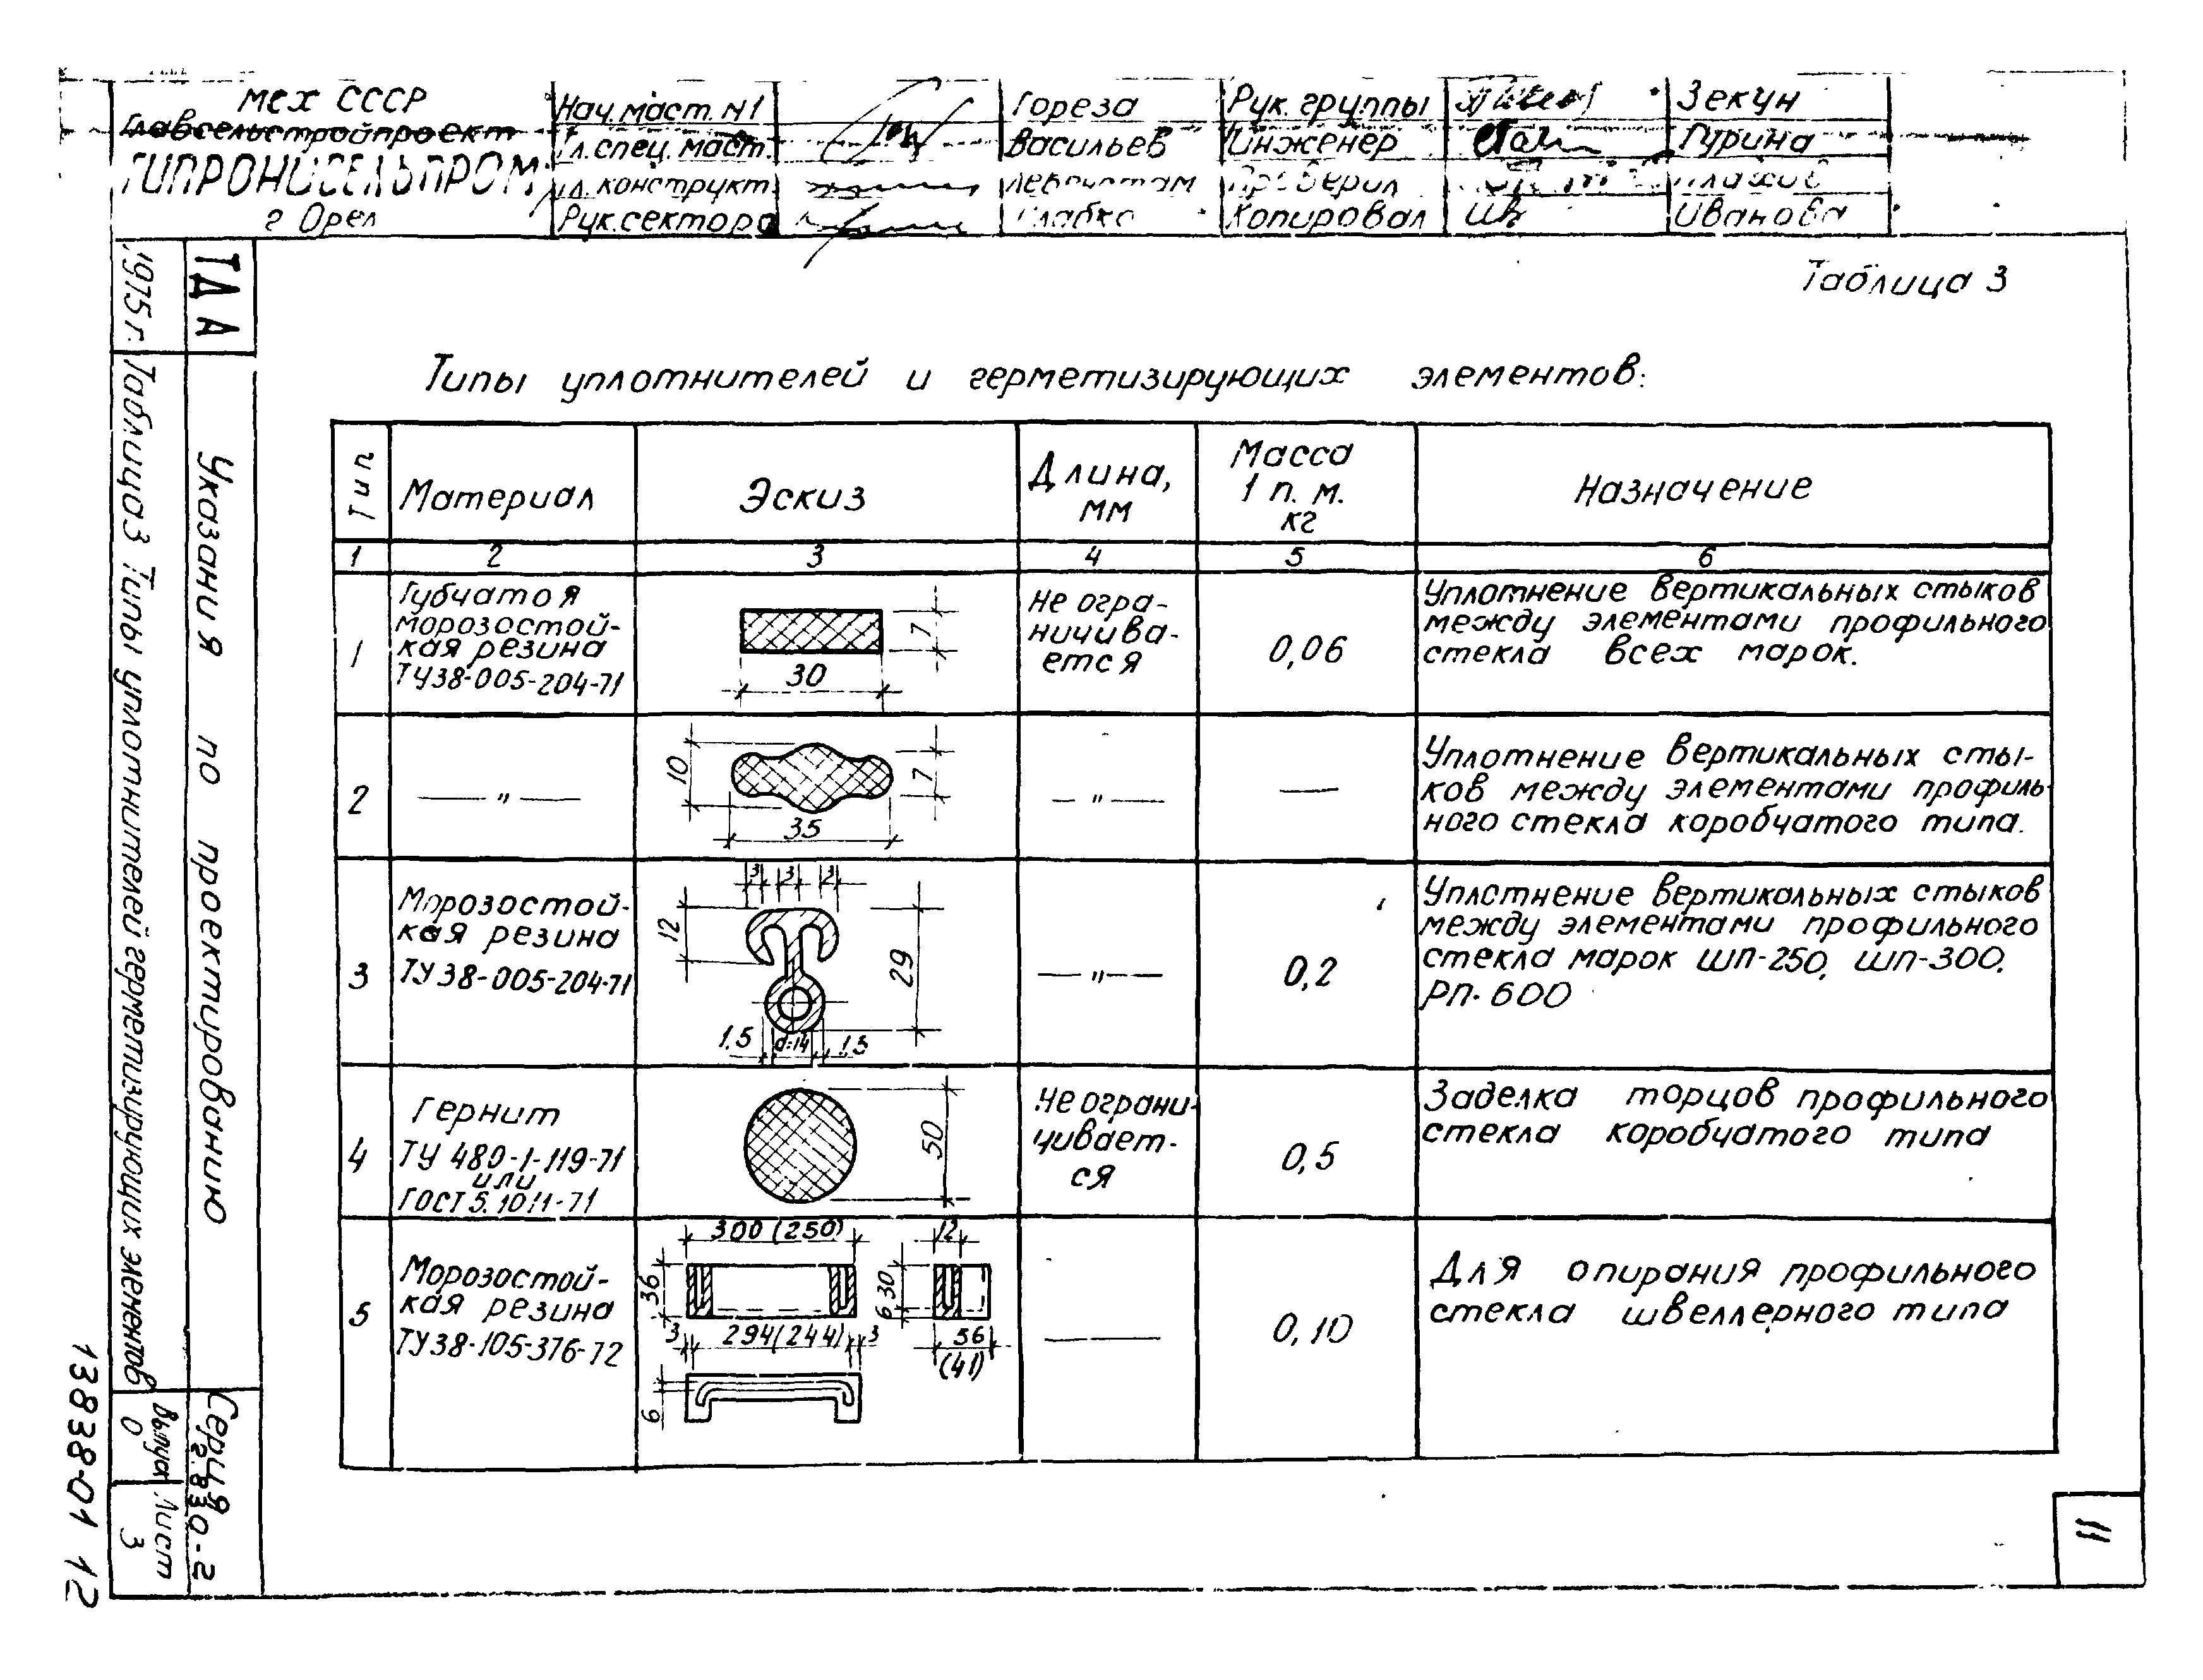 мех СССР
Главсельстройпроект
ГИПРОНИСЕЛЬПРОМ
г Орел
Нач. маст. N1
Гл. спец. маст.
Гл. конструкт.
Рук. сектора
Гореза
Васильев
Рук. группы
Инженер
Проверил
Копировал
Зекун
Гурина
Иванова
Таблица 3
Типы уплотнителей и герметизирующих элементов:
Тип
Материал
Эскиз
Длина,
мм
Масса
1 п. м.
кг
Назначение
1 2 3 4 5 6
1
Губчатоя
морозостой-
кая резина
ТУ38-005-204-71
7
30
Не огра-
ничива-
ется
0,06
Уплотнение вертикальных стыков
между элементами профильного
стекла всех марок.
2
— " —
10
7
35
— " —
—
Уплотнение вертикальных сты-
ков между элементами профиль-
ного стекла коробчатого типа.
3
Морозостой-
кая резина
ТУ 38-005-204-71
3 3 3
12
29
1,5 d=14 1,5
— " —
0,2
Уплотнение вертикальных стыков
между элементами профильного
стекла марок ШП-250, ШП-300,
РП-600
4
Гернит
ТУ 480-1-119-71
или
ГОСТ 5.1011-71
50
Не ограни-
чивает-
ся
0,5
Заделка торцов профильного
стекла коробчатого типа
5
Морозостой-
кая резина
ТУ38-105-376-72
300 (250)
12
36
6 30
3 294(244) 3
56
(41)
6
—
0,10
Для опирания профильного
стекла швеллерного типа
ТДА
1975 г.
Указания по проектированию
Таблица 3 Типы уплотнителей герметизирующих элементов
Серия
2.830-2
Выпуск
0
Лист
3
13838-01 12
11